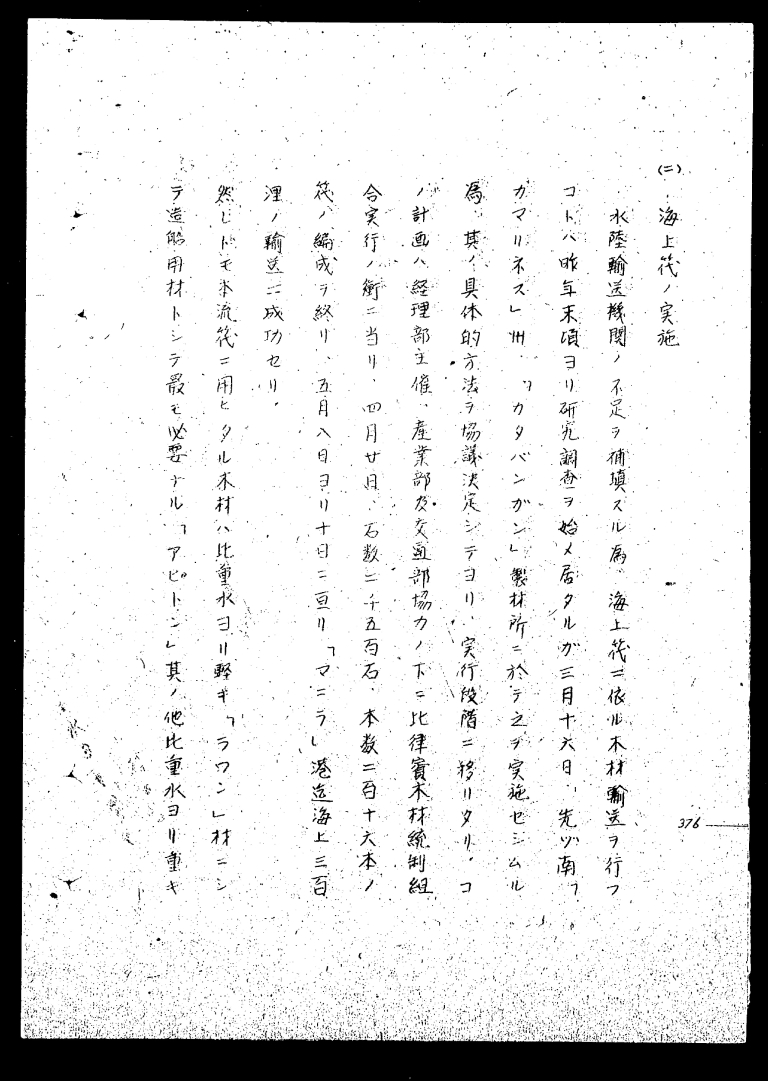 (二)海上筏ノ実施
水陸輸送機関ノ不足ヲ補填スル為、海上筏ニ依ル木材輸送ヲ行フ
コトハ昨年末頃ヨリ研究調査ヲ始メ居タルガ三月十六日、先ヅ南「
カマリネス」州、「カタバンガン」製材所ニ於テ之ヲ実施セシムル
為、其ノ具体的方法ヲ協議決定シテヨリ、実行段階ニ移リタリ。コ
ノ計画ハ経理部主催、産業部及交通部協力ノ下ニ比律賓木材統制組
合実行ノ衝ニ当リ、四月廿日、石数二千五百石、本数二百十六本ノ
筏ノ編成ヲ終リ、五月八日ヨリ十日ニ亘リ「マニラ」港迄海上三百
浬ノ輸送ニ成功セリ。
然レドモ本流筏ニ用ヒタル木材ハ比重水ヨリ軽キ「ラワン」材ニシ
テ造船用材トシテ最モ必要ナル「アピトン」其ノ他比重水ヨリ重キ
376